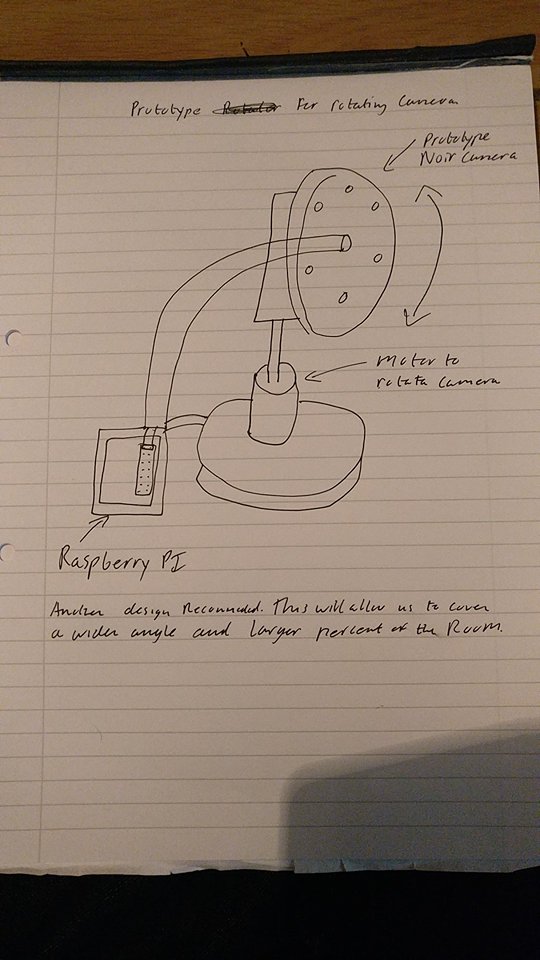 Prototype For rotating Camera
Prototype
Noir Camera
Motor to
rotata camera
Raspberry PI
Another design Recommended. This will allow us to cover
a wider angle and larger percent of the Room.